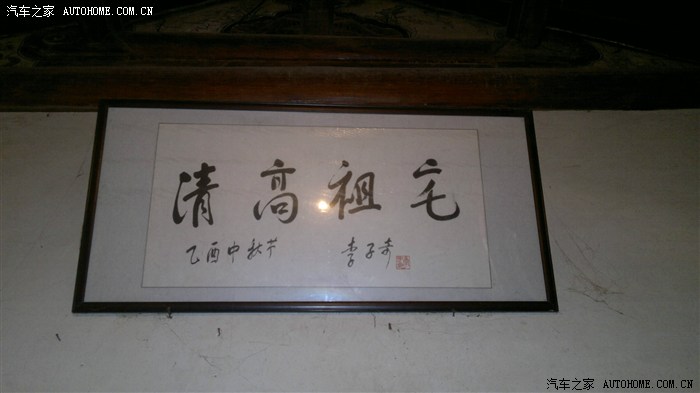 汽车之家 AUTOHOME.COM.CN
清高祖宅
乙酉中秋节 李子奇
汽车之家 AUTOHOME.COM.CN